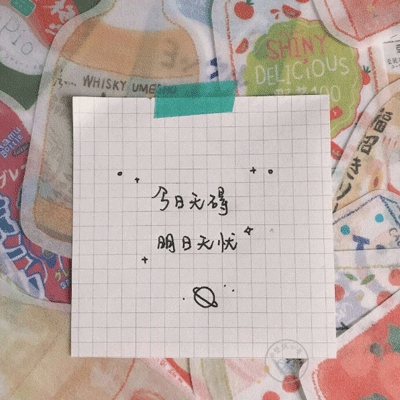 Pio
WHISKY UMESHU
SHINY
DELICIOUS
100
福招き
今日无碍
明日无忧